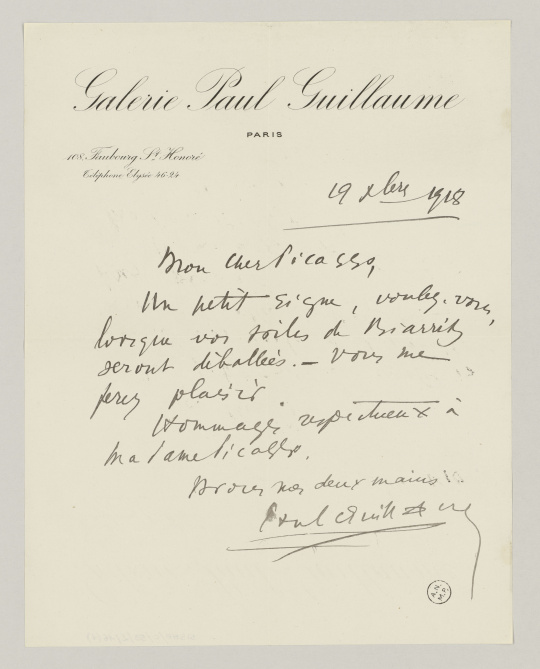 Galerie Paul Guillaume
PARIS
108. Faubourg St Honoré
Téléphone Elysée 46-24
19 xbre 1918
Mon cher Picasso,
Un petit signe, voulez-vous,
lorsque vos toiles de Biarritz
seront déballées. – Vous me
ferez plaisir.
Hommages respectueux à
Madame Picasso.
deux mains
Paul Guillaume
A.N.
M.P.